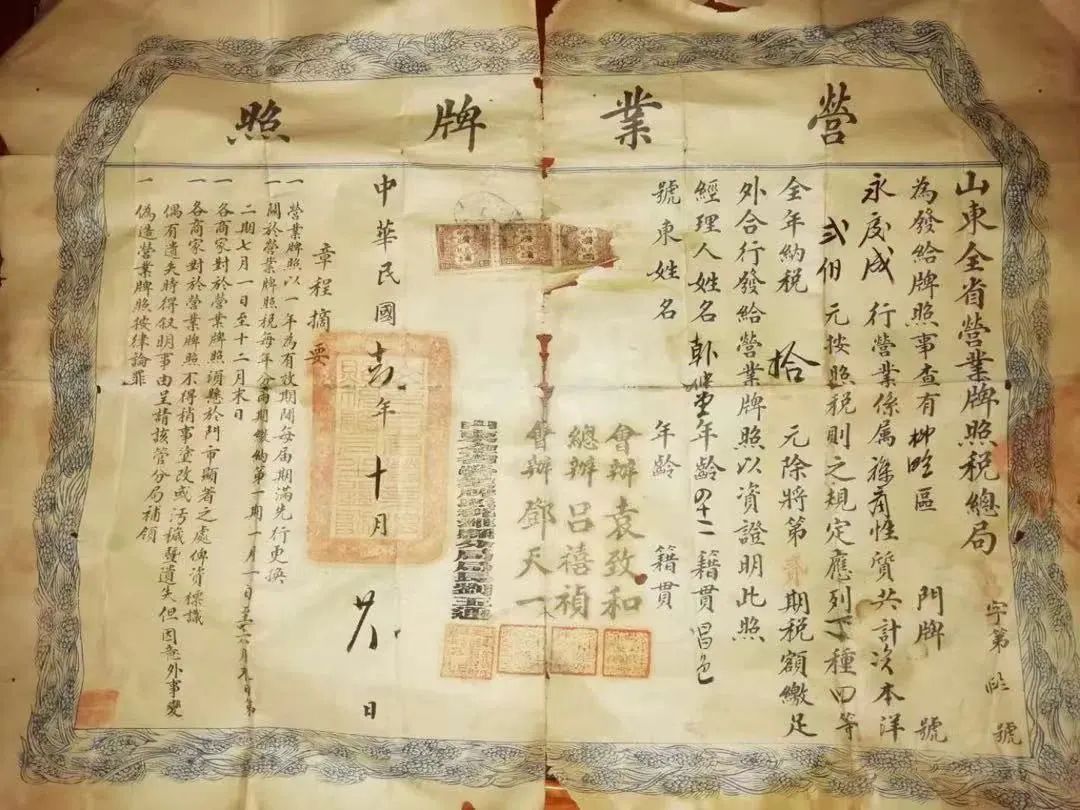 營業牌照
山東全省營業牌照稅總局
字第 號
為發給牌照事查有 區 門牌 號
永慶成 行營業係屬雜貨性質共計資本洋
弍佰 元按照稅則之規定應列丁種四等
全年納稅 拾 元除將第貳期稅額繳足
外合行發給營業牌照以資證明此照
經理人姓名 年齡四十二 籍貫昌邑
號東姓名 年齡 籍貫
會辦袁致和
總辦呂禧禎
會辦鄧天一
中華民國 年十月廿八日
章程摘要
一營業牌照以一年為有效期間每屆期滿先行更換
一關於營業牌照稅每年分兩期繳納第一期一月一日至六月末日第
二期七月一日至十二月末日
一各商家對於營業牌照須懸於門市顯著之處俾資標識
一各商家對於營業牌照不得稍事塗改或污穢暨遺失但因意外事變
偶有遺失時得敘明事由呈請該管分局補領
一偽造營業牌照按律論罪